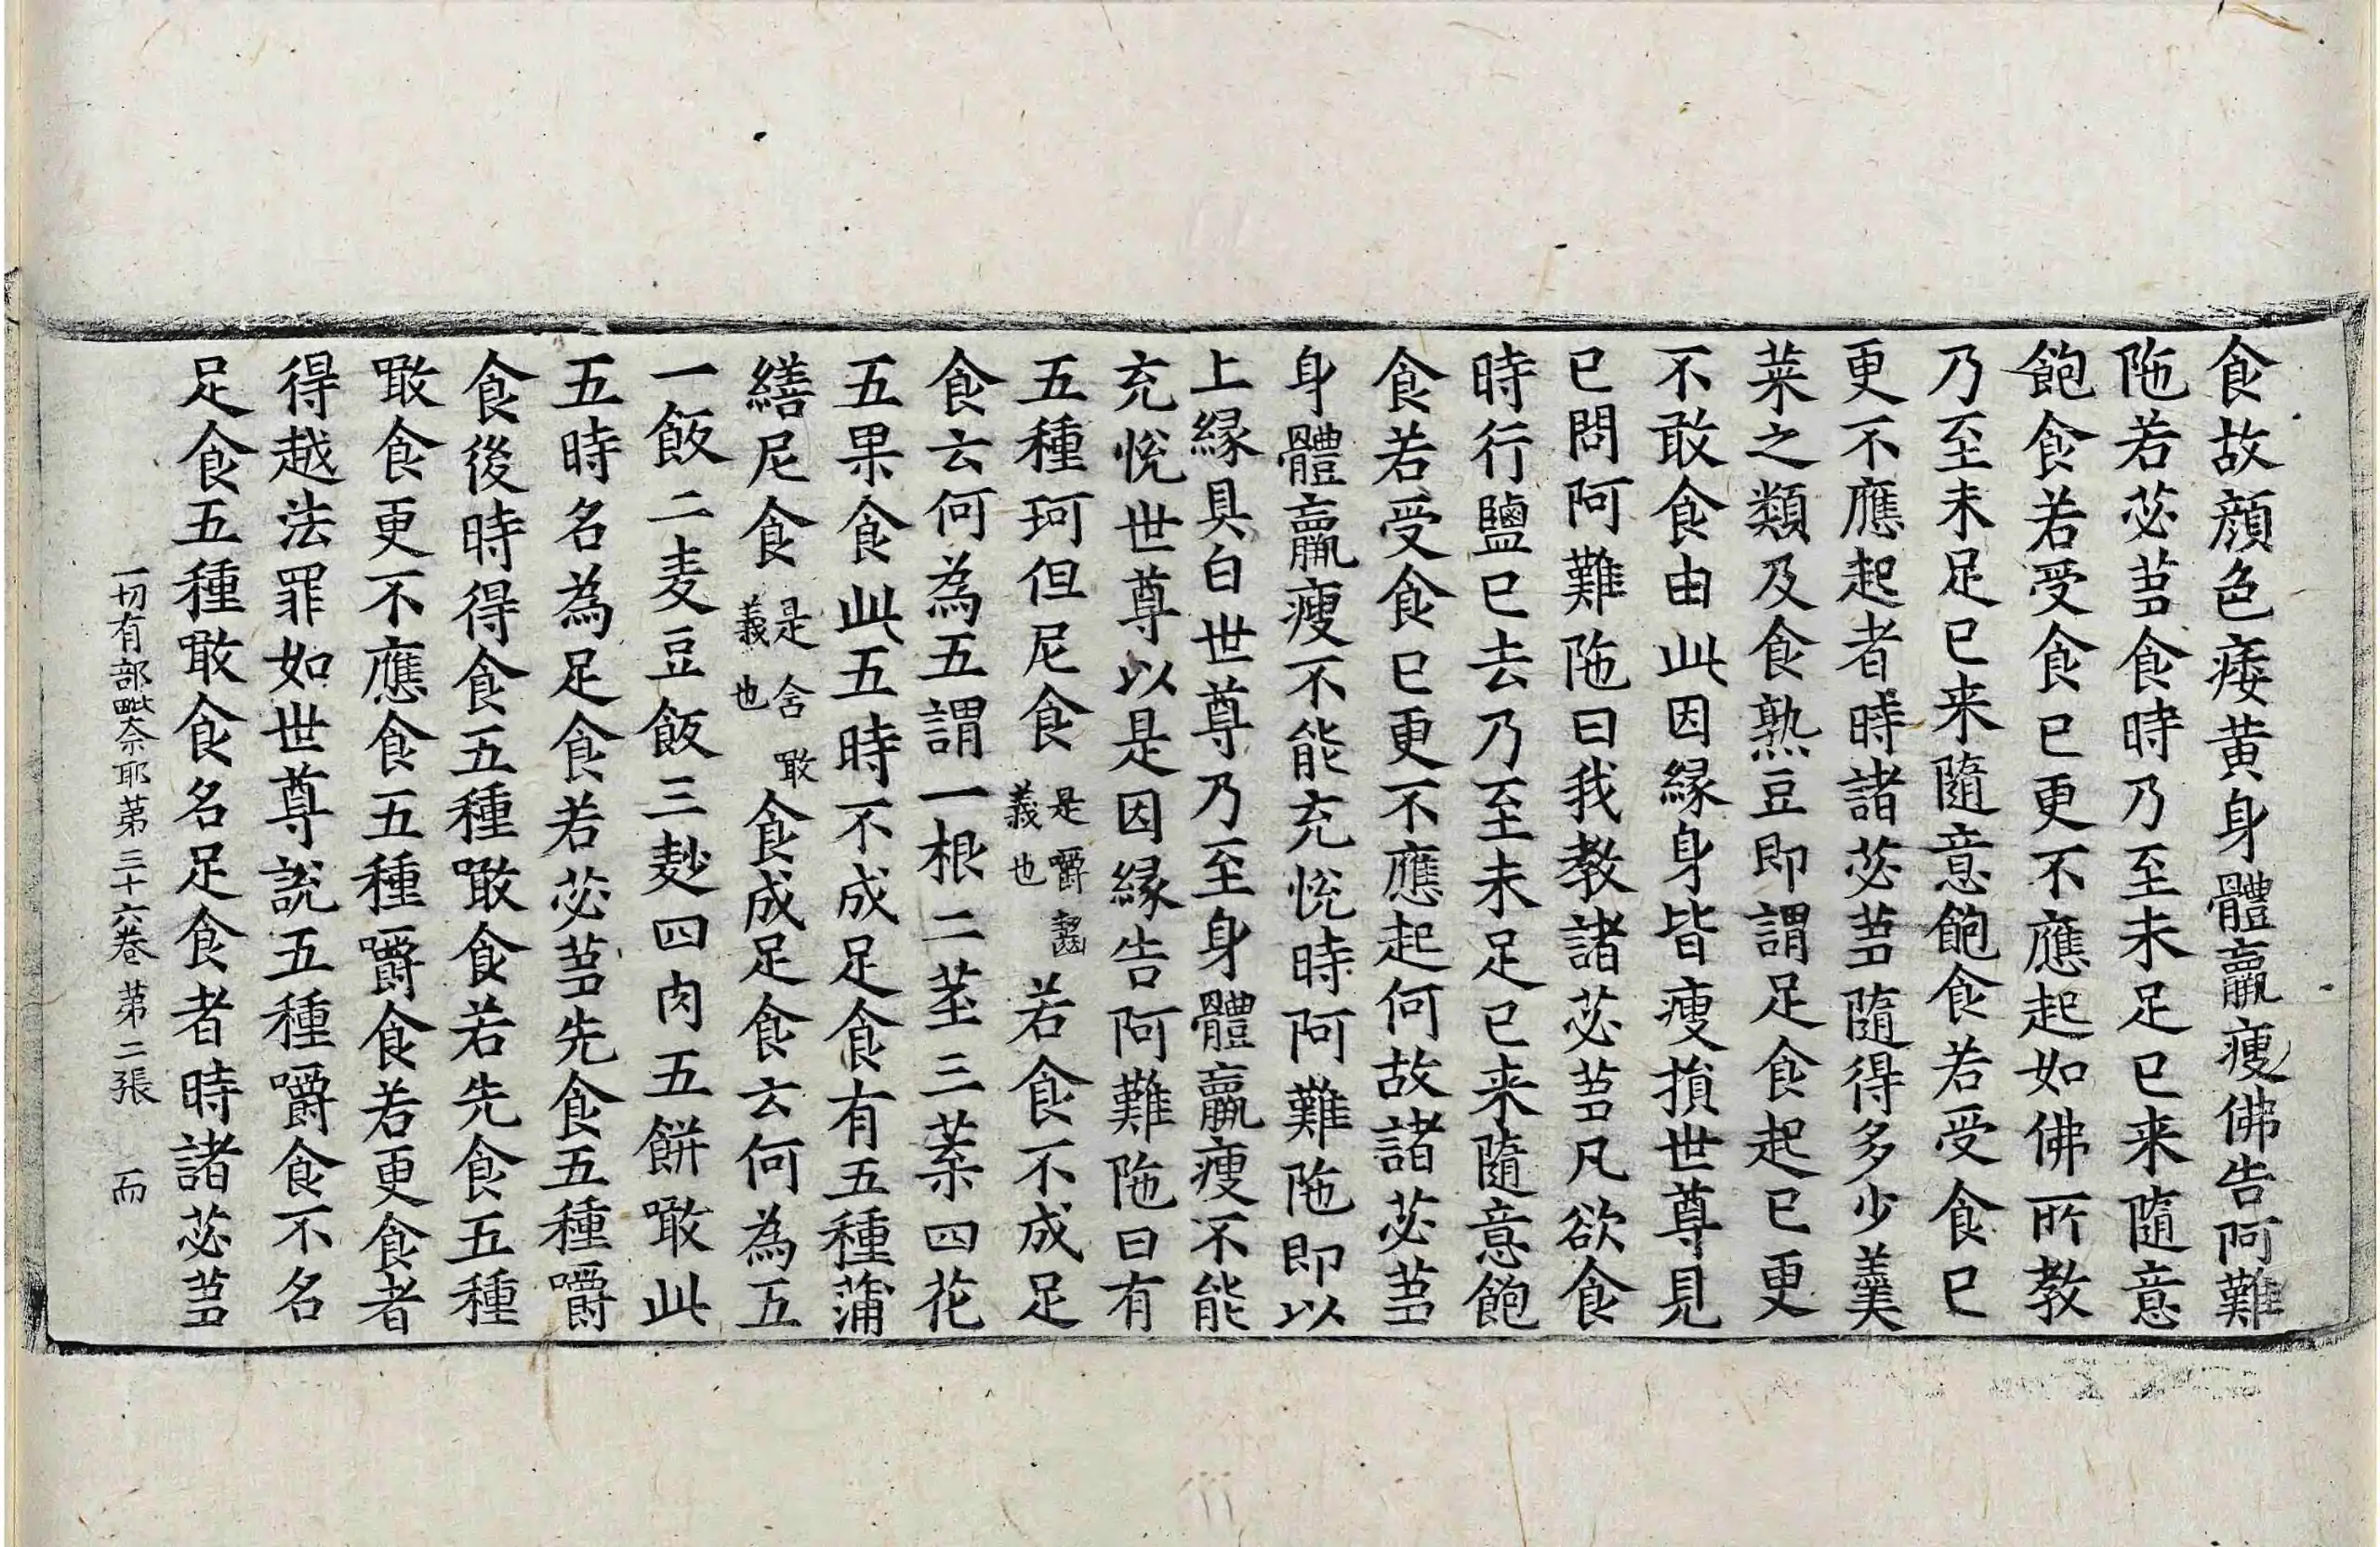 食故顔色痿黄身體羸瘦佛告阿難
陁若苾芻食時乃至未足已来隨意
飽食若受食已更不應起如佛所教
乃至未足已来隨意飽食若受食已
更不應起者時諸苾芻隨得多少羹
菜之類及食熟豆即謂足食起已更
不敢食由此因緣身皆瘦損世尊見
已問阿難陁曰我教諸苾芻凡欲食
時行鹽已去乃至未足已来隨意飽
食若受食已更不應起何故諸苾芻
身體羸瘦不能充悅時阿難陁即以
上緣具白世尊乃至身體羸瘦不能
充悅世尊以是因緣告阿難陁曰有
五種珂但尼食是嚼齧義也若食不成足
食云何為五謂一根二莖三葉四花
五果食此五時不成足食有五種蒲
繕尼食是含噉義也食成足食云何為五
一飯二麦豆飯三麨四肉五餅噉此
五時名為足食若苾芻先食五種嚼
食後時得食五種噉食若先食五種
噉食更不應食五種嚼食若更食者
得越法罪如世尊說五種嚼食不名
足食五種噉食名足食者時諸苾芻
一切有部毗奈耶第三十六卷 第二張 而